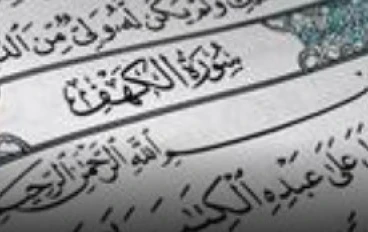 وَلَمْ يَكُن لَّهُۥ وَلِىٌّ مِّنَ
سُورَةُ الكَهۡفِ
ٱللَّهِ ٱلرَّحۡمَٰنِ ٱلرَّحِيمِ
عَلَىٰ عَبۡدِهِ ٱلۡكِتَٰبَ وَلَمۡ